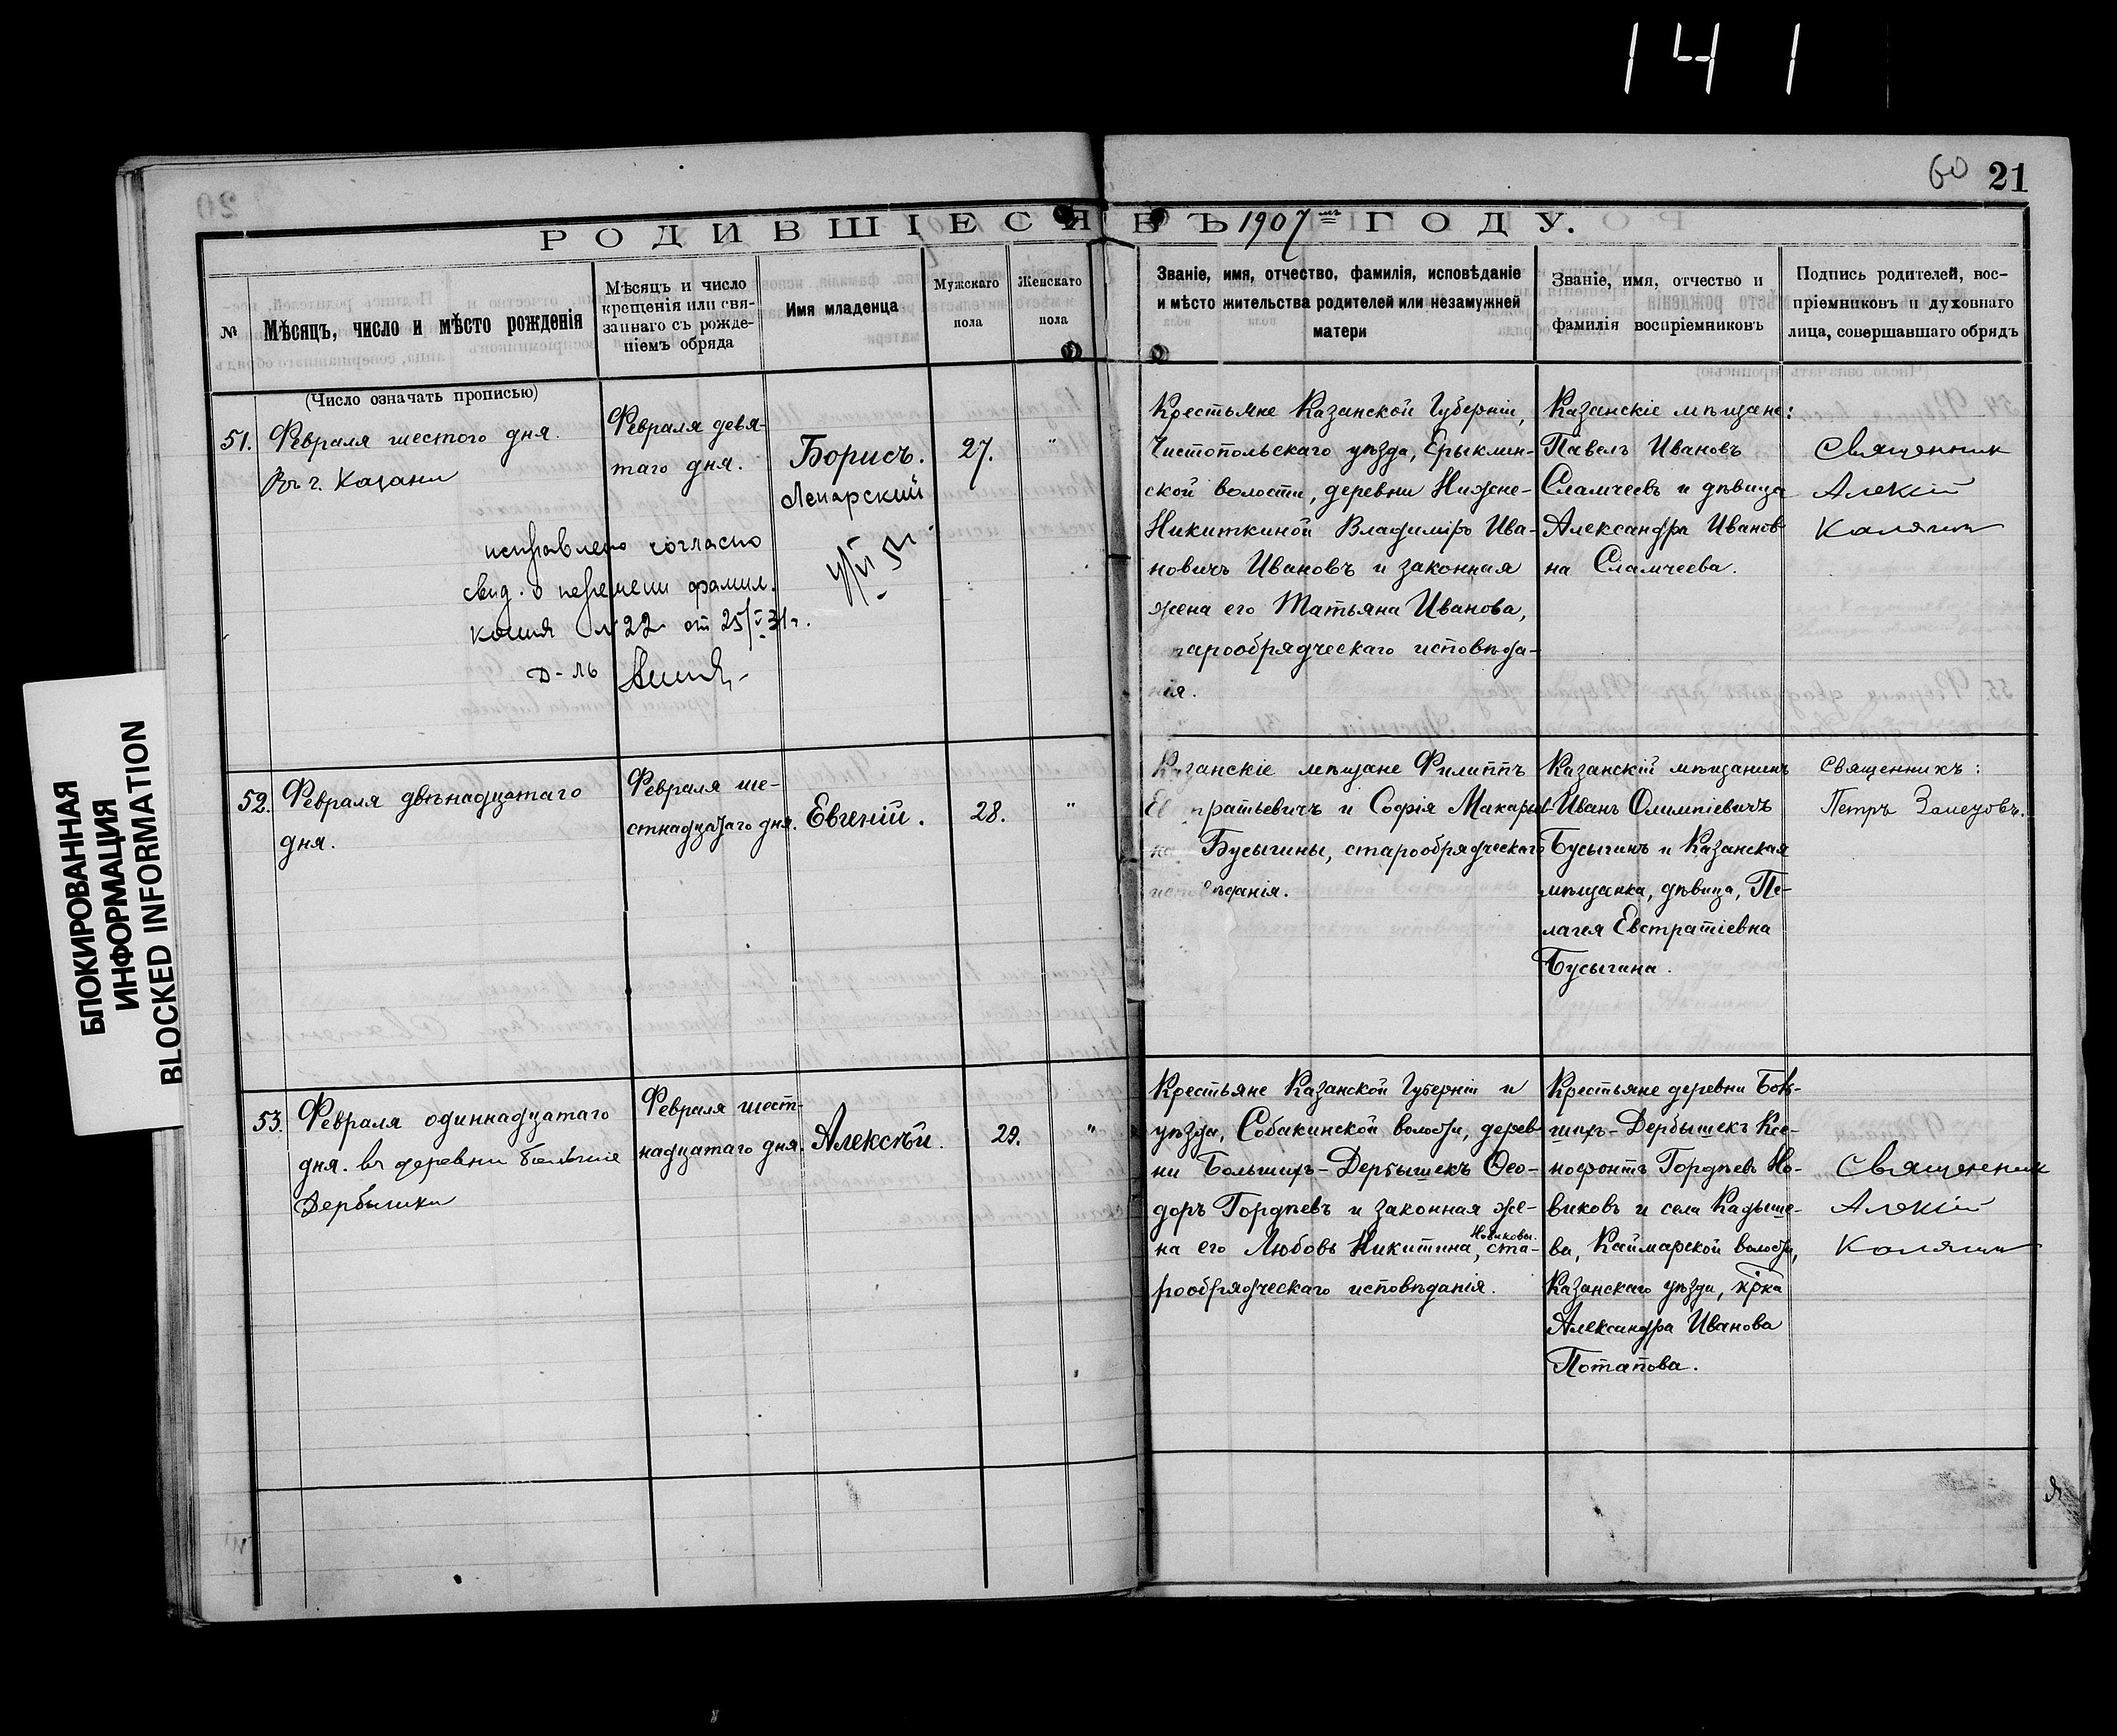 141
60 21
РОДИВШІЕСЯ ВЪ 1907 мъ ГОДУ.
№
Мѣсяцъ, число и мѣсто рожденія
Мѣсяцъ и число
крещенія или свя-
заннаго съ рожде-
ніемъ обряда
Имя младенца
Мужскаго
пола
Женскаго
пола
Званіе, имя, отчество, фамилія, исповѣданіе
и мѣсто жительства родителей или незамужней
матери
Званіе, имя, отчество и
фамилія воспріемниковъ
Подпись родителей, вос-
пріемниковъ и духовнаго
лица, совершавшаго обрядъ
(Число означать прописью)
51.
Февраля шестого дня.
Въ г. Казани
Февраля девя-
таго дня.
Борисъ.
Ленарский
27.
"
исправлено согласно
свид. о перемени фамил.
копия № 22 от 25/V 31 г.
д-ль
Крестьяне Казанской Губерніи,
Чистопольскаго уѣзда, Ерыклин-
ской волости, деревни Нижне-
Никиткиной Владиміръ Ива-
новичъ Ивановъ и законная
жена его Татьяна Иванова,
старообрядческаго исповѣда-
нія.
Казанскіе мѣщане:
Павелъ Ивановъ
Сламчеевъ и дѣвица
Александра Иванов-
на Сламчеева.
Священник
Алексій
Калягин
52.
Февраля двѣнадцатаго
дня.
Февраля ше-
стнадцатаго дня.
Евгеній.
28.
"
Казанскіе мѣщане Филиппъ
Евстратьевичъ и Софія Макарьев-
на Бусыгины, старообрядческаго
исповѣданія.
Казанскій мѣщанинъ
Иванъ Олимпіевичъ
Бусыгинъ и Казанская
мѣщанка, дѣвица, Пе-
лагея Евстратіевна
Бусыгина.
Священникъ:
Петръ Залетовъ.
53.
Февраля одиннадцатаго
дня. въ деревни Большие
Дербышки
Февраля шест-
надцатаго дня.
Алексѣй.
29.
"
Крестьяне Казанской Губерніи и
уѣзда, Собакинской волости, дерев-
ни Большихъ-Дербышекъ Ѳео-
доръ Гордѣевъ и законная же-
на его Любовь Никитина, Новиковы. ста-
рообрядческаго исповѣданія.
Крестьяне деревни Боль-
шихъ-Дербышекъ Ксе-
нофонтъ Гордѣевъ Но-
виковъ и села Кадыше-
ва, Каймарской волости,
Казанскаго уѣзда, кр-ка
Александра Иванова
Потапова.
Священник
Алексій
Калягин
БЛОКИРОВАННАЯ
ИНФОРМАЦИЯ
BLOCKED INFORMATION